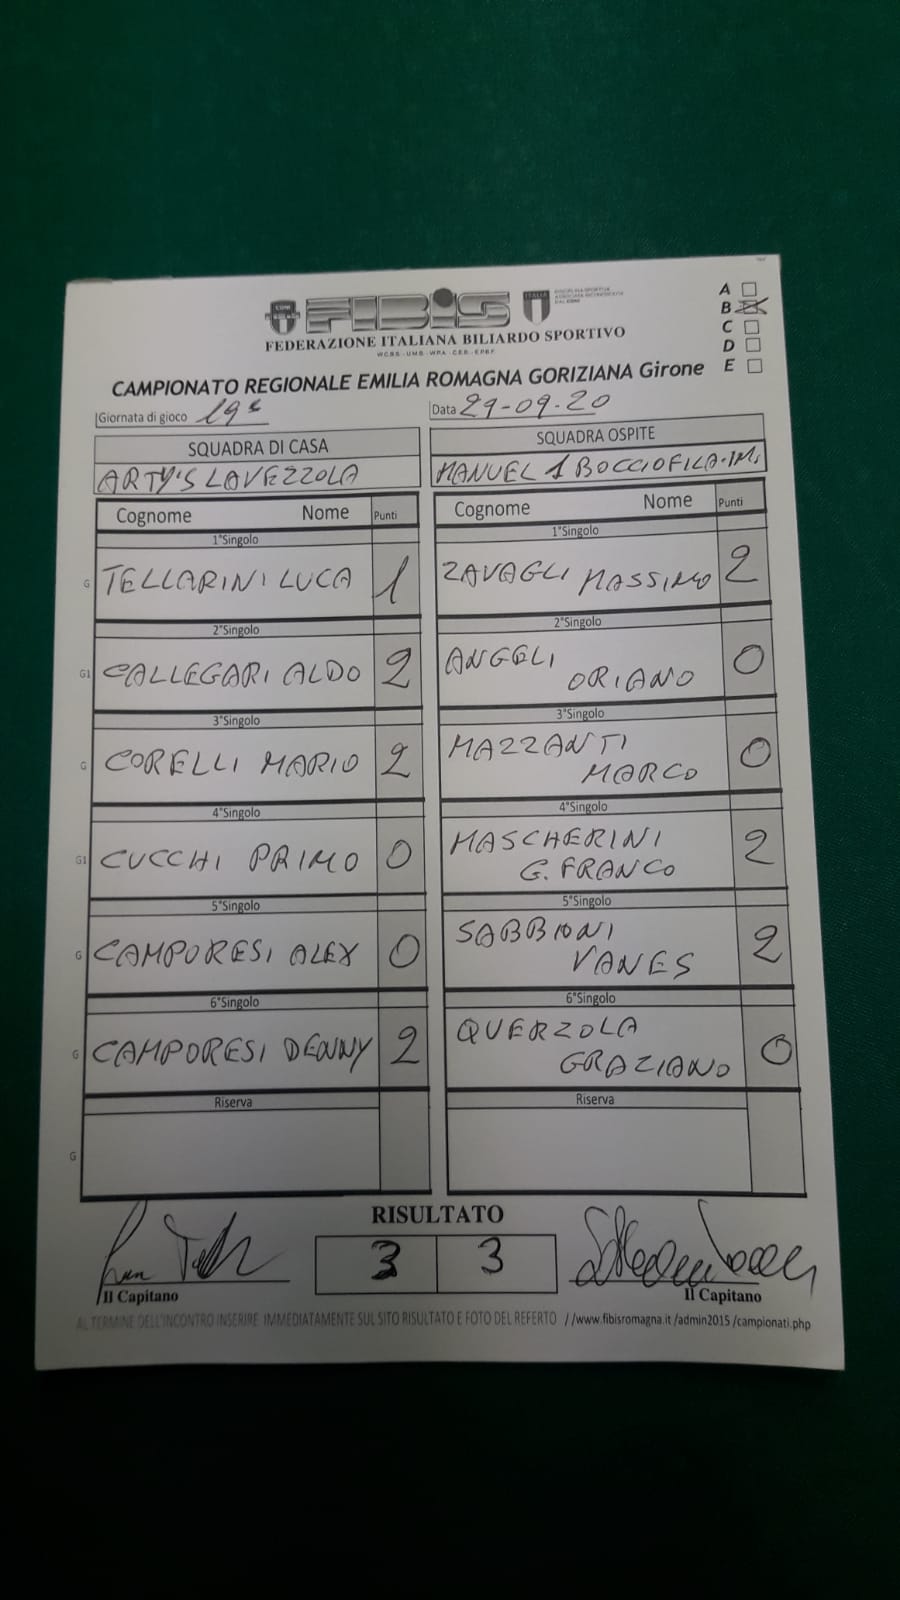 FIBIS
FEDERAZIONE ITALIANA BILIARDO SPORTIVO
WCBS - UMB - WPA - CEB - EPBF
A
B
C
D
E
CAMPIONATO REGIONALE EMILIA ROMAGNA GORIZIANA Girone
Giornata di gioco 19ª Data 29-09-20
SQUADRA DI CASA SQUADRA OSPITE
ARTY'S LAVEZZOLA MANUEL 1 BOCCIOFILA.IM.
Cognome Nome Punti Cognome Nome Punti
1°Singolo 1°Singolo
G TELLARINI LUCA 1 ZAVAGLI MASSIMO 2
2°Singolo 2°Singolo
G1 CALLEGARI ALDO 2 ANGELI ORIANO 0
3°Singolo 3°Singolo
G CORELLI MARIO 2 MAZZANTI MARCO 0
4°Singolo 4°Singolo
G1 CUCCHI PRIMO 0 MASCHERINI G. FRANCO 2
5°Singolo 5°Singolo
G CAMPORESI ALEX 0 SABBIONI VANES 2
6°Singolo 6°Singolo
G CAMPORESI DENNY 2 QUERZOLA GRAZIANO 0
Riserva Riserva
G
RISULTATO
3 3
Il Capitano Il Capitano
AL TERMINE DELL'INCONTRO INSERIRE IMMEDIATAMENTE SUL SITO RISULTATO E FOTO DEL REFERTO //www.fibisromagna.it /admin2015 /campionati.php